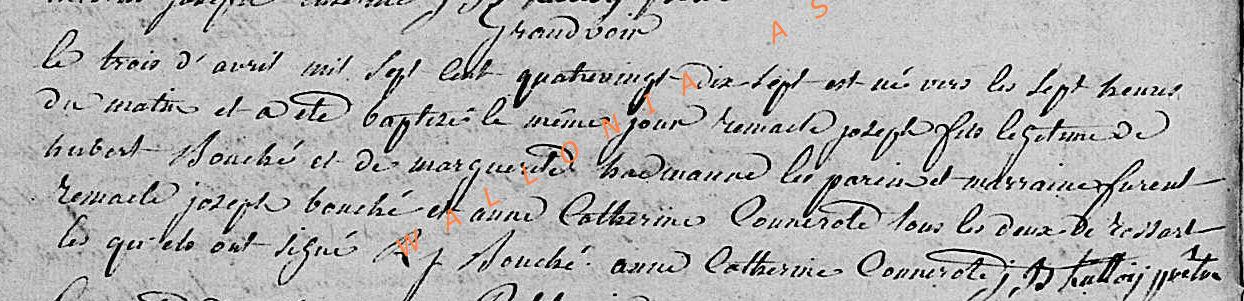 Grandvoir
le trois d'avril mil sept cent quatrevingt dix sept est né vers les sept heures
du matin et a été baptisé le même jour remacle joseph fils legitime de
hubert Bouché et de marguerite hadmanne les parin et marraine furent
remacle joseph bouché et anne Catherine Connerote tous les deux de rossart
les quels ont signé R j Bouché anne Catherine Connerote j B hattoij prêtre
WALLONIA AS